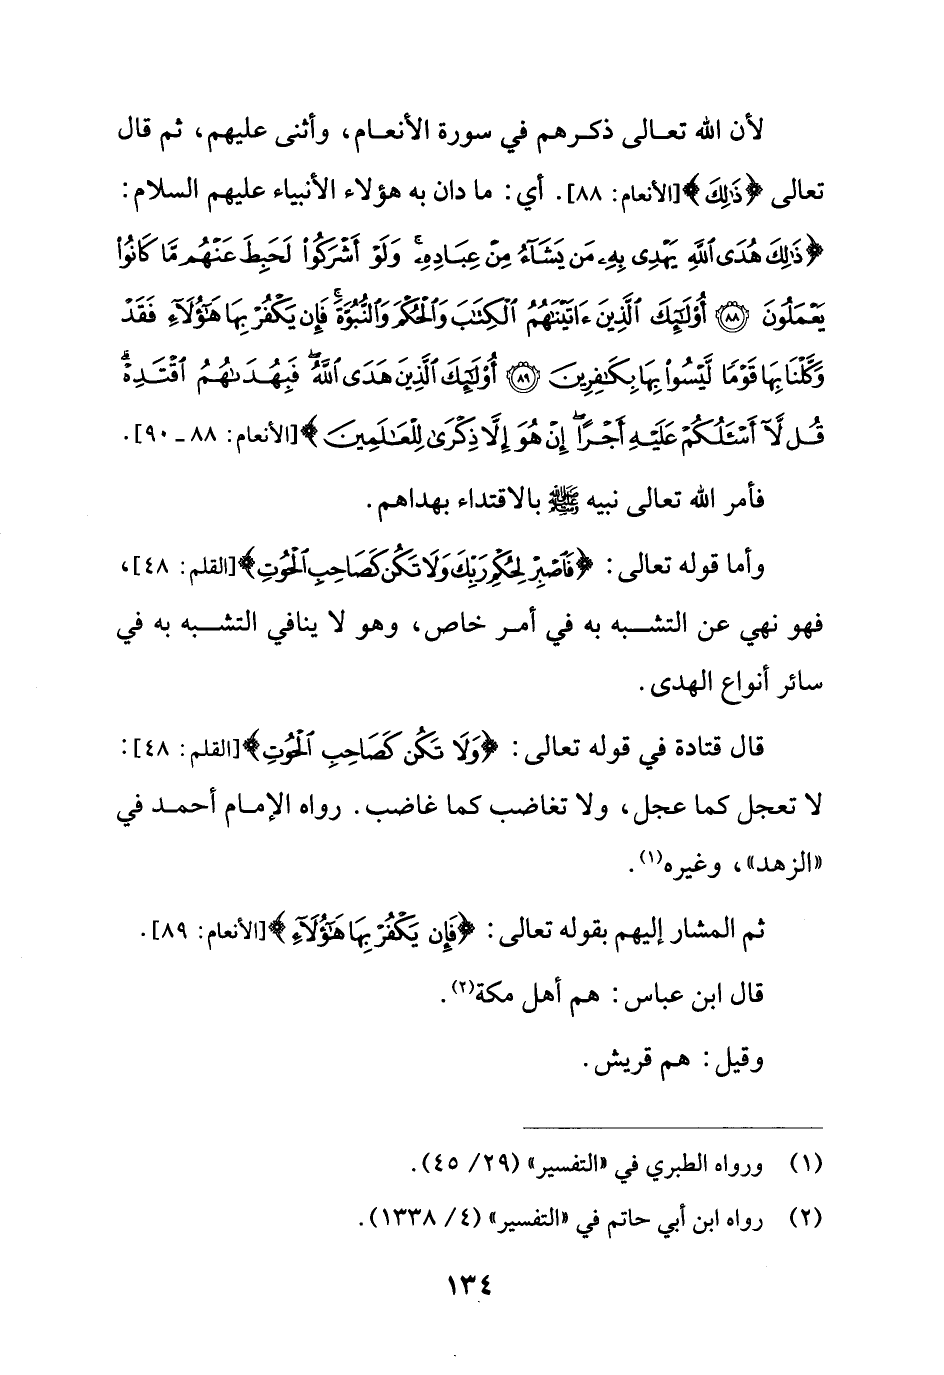 لأن الله تعالى ذكرهم في سورة الأنعام، وأثنى عليهم، ثم قال
تعالى ﴿ذَٰلِكَ﴾ [الأنعام: ٨٨]. أي: ما دان به هؤلاء الأنبياء عليهم السلام:
﴿ذَٰلِكَ هُدَى ٱللَّهِ يَهْدِى بِهِۦ مَن يَشَآءُ مِنْ عِبَادِهِۦ ۚ وَلَوْ أَشْرَكُوا۟ لَحَبِطَ عَنْهُم مَّا كَانُوا۟
يَعْمَلُونَ ۝٨٨ أُو۟لَٰٓئِكَ ٱلَّذِينَ ءَاتَيْنَٰهُمُ ٱلْكِتَٰبَ وَٱلْحُكْمَ وَٱلنُّبُوَّةَ ۚ فَإِن يَكْفُرْ بِهَا هَٰٓؤُلَآءِ فَقَدْ
وَكَّلْنَا بِهَا قَوْمًا لَّيْسُوا۟ بِهَا بِكَٰفِرِينَ ۝٨٩ أُو۟لَٰٓئِكَ ٱلَّذِينَ هَدَى ٱللَّهُ ۖ فَبِهُدَىٰهُمُ ٱقْتَدِهْ ۗ
قُل لَّآ أَسْـَٔلُكُمْ عَلَيْهِ أَجْرًا ۖ إِنْ هُوَ إِلَّا ذِكْرَىٰ لِلْعَٰلَمِينَ﴾ [الأنعام: ٨٨ - ٩٠].
فأمر الله تعالى نبيه ﷺ بالاقتداء بهداهم.
وأما قوله تعالى: ﴿فَٱصْبِرْ لِحُكْمِ رَبِّكَ وَلَا تَكُن كَصَاحِبِ ٱلْحُوتِ﴾ [القلم: ٤٨]،
فهو نهي عن التشبه به في أمر خاص، وهو لا ينافي التشبه به في
سائر أنواع الهدى.
قال قتادة في قوله تعالى: ﴿وَلَا تَكُن كَصَاحِبِ ٱلْحُوتِ﴾ [القلم: ٤٨]:
لا تعجل كما عجل، ولا تغاضب كما غاضب. رواه الإمام أحمد في
«الزهد»، وغيره(١).
ثم المشار إليهم بقوله تعالى: ﴿فَإِن يَكْفُرْ بِهَا هَٰٓؤُلَآءِ﴾ [الأنعام: ٨٩].
قال ابن عباس: هم أهل مكة(٢).
وقيل: هم قريش.
(١) ورواه الطبري في «التفسير» (٢٩/ ٤٥).
(٢) رواه ابن أبي حاتم في «التفسير» (٤/ ١٣٣٨).
١٣٤